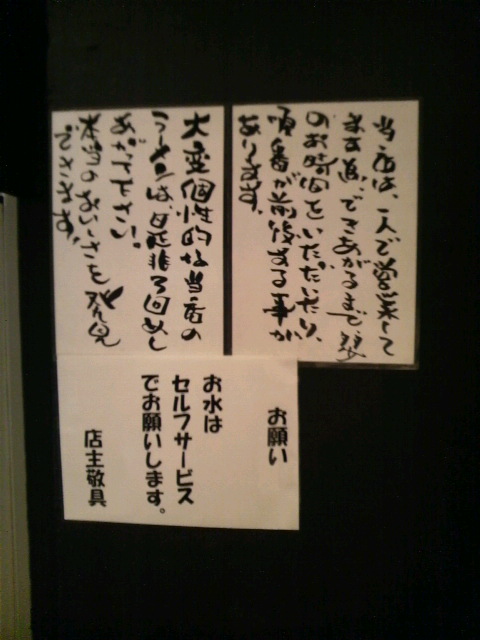 当店は、一人で営業して
ます為、できあがるまで、多少
のお時間をいただいたり、
順番が前後する事が
あります。
大変個性的な当店の
ラーメンは是非3回めし
あがって下さい。
本当のおいしさを発見
できます。
お願い
お水は
セルフサービス
でお願いします。
店主敬具